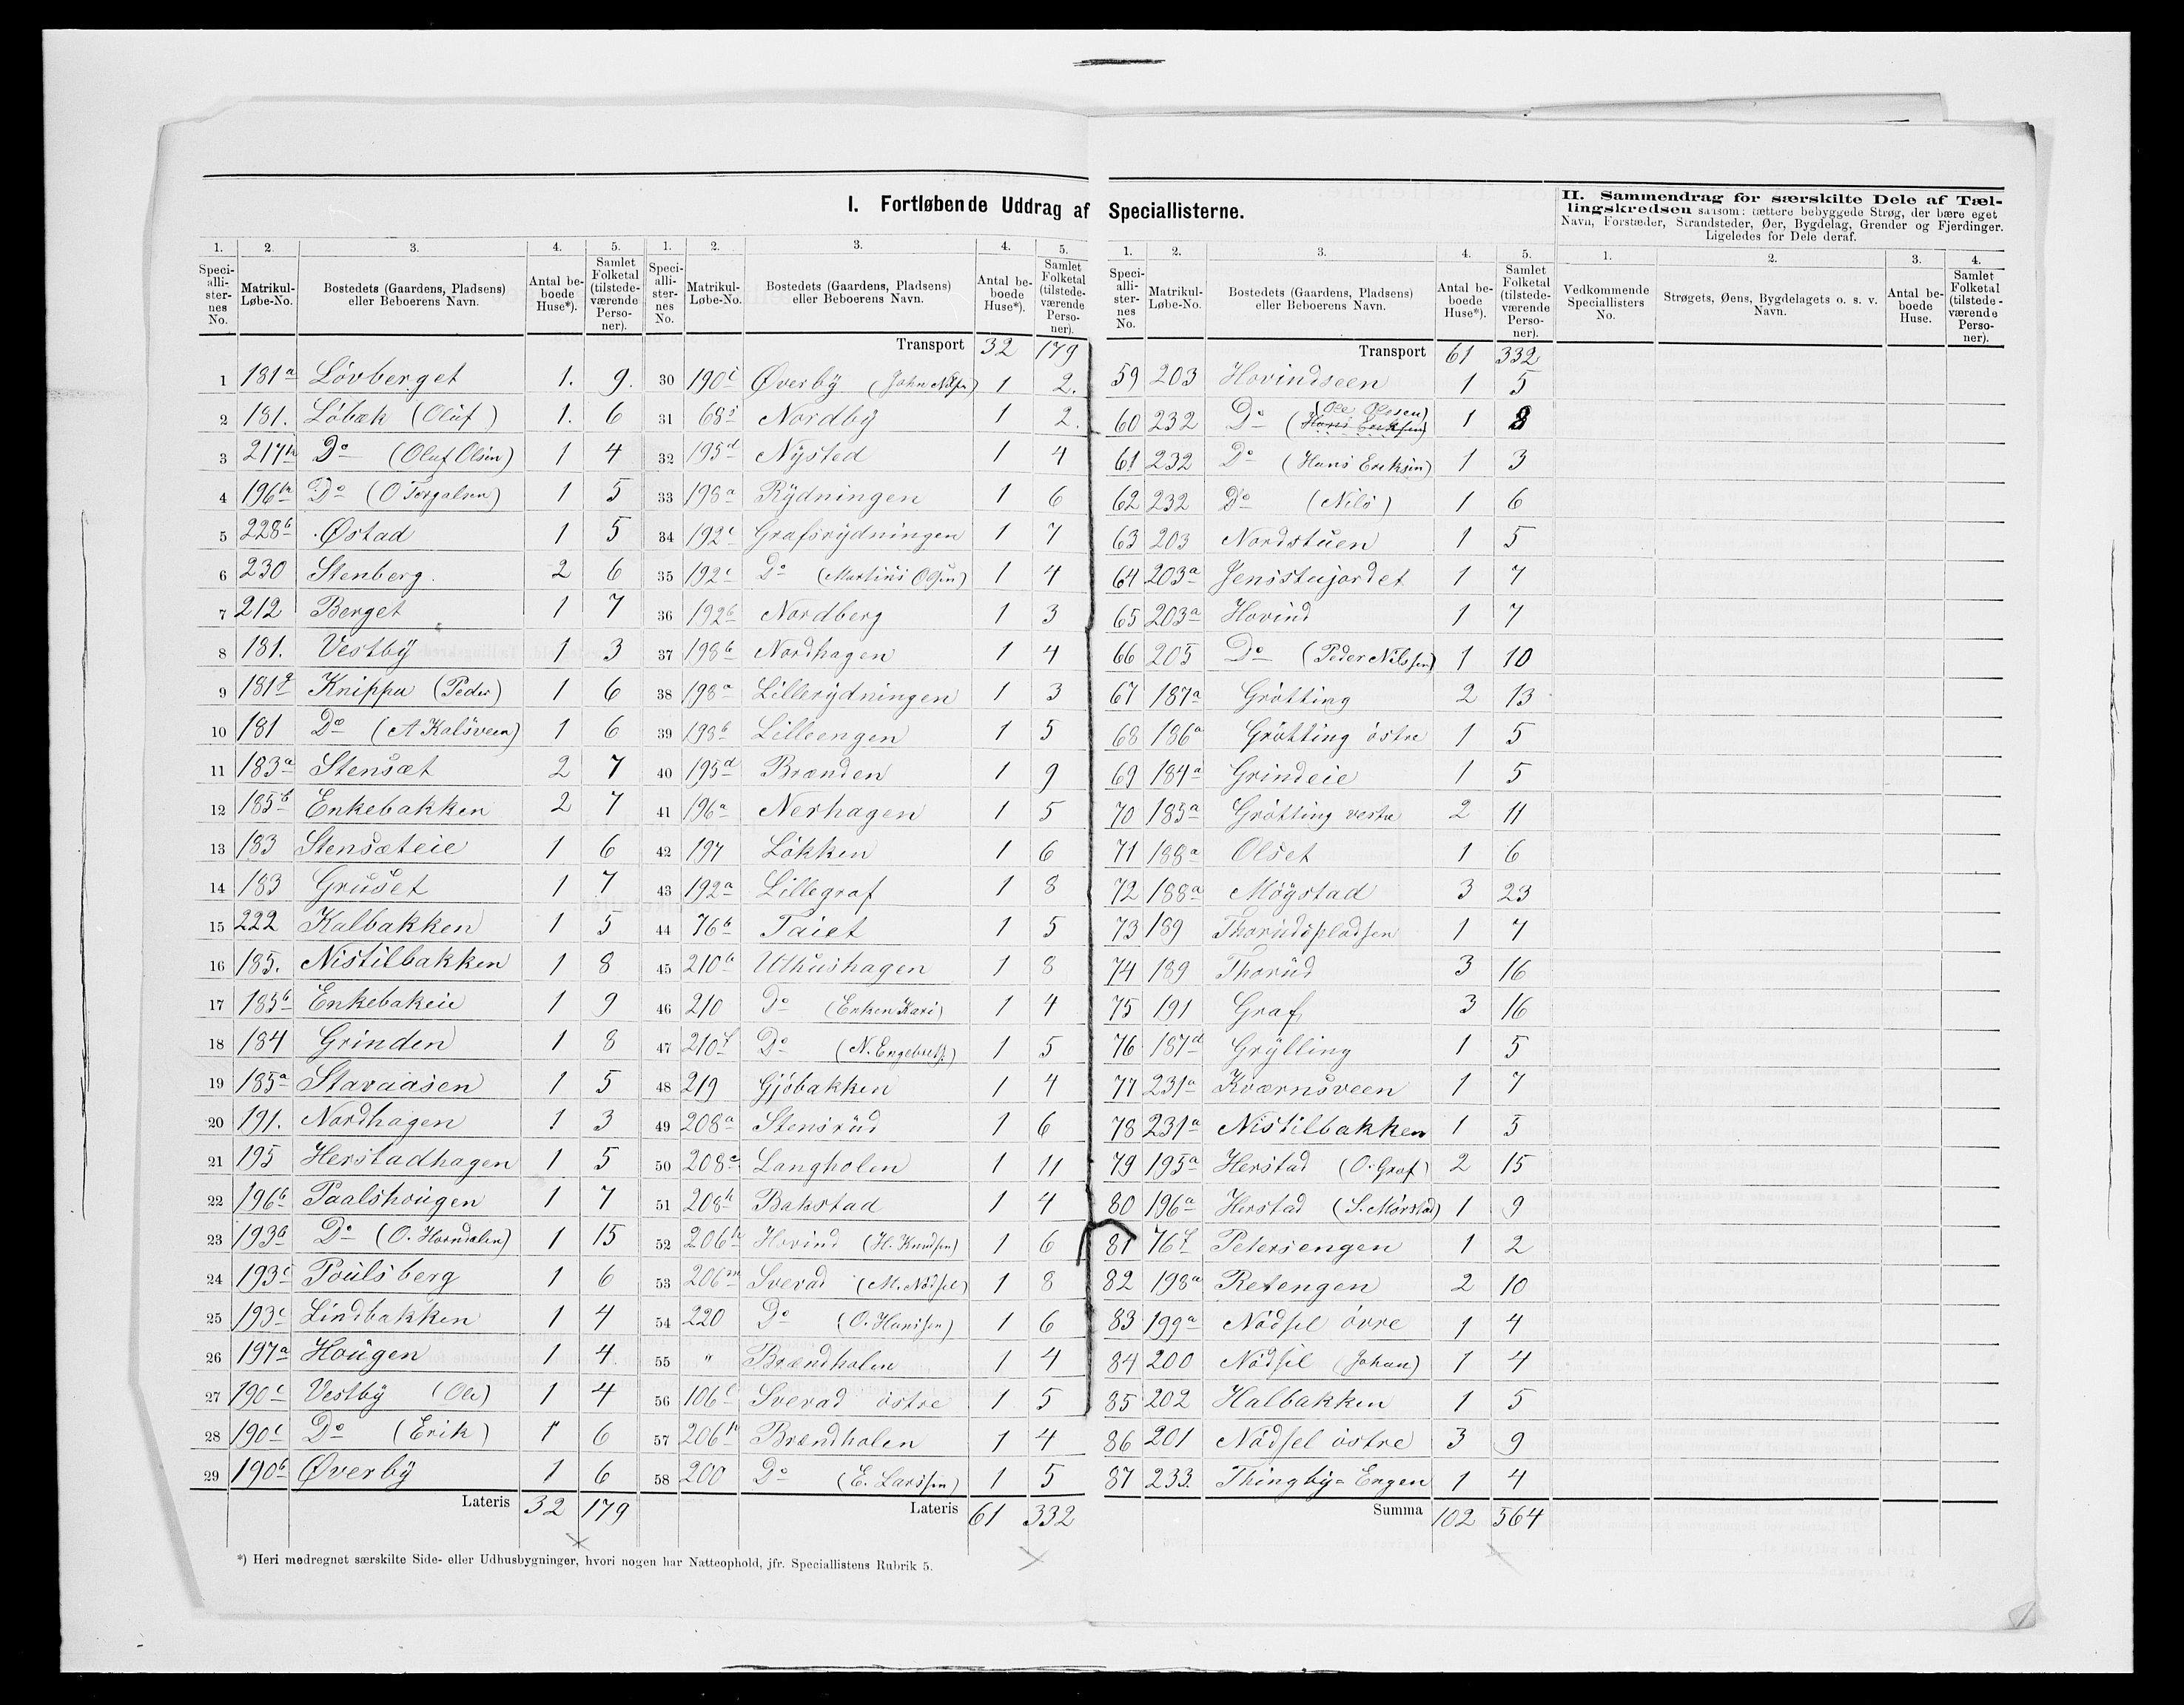 I. Fortløbende Uddrag af Speciallisterne.
II. Sammendrag for særskilte Dele af Tæl-
lingskredsen saasom: tættere bebyggede Strøg, der bære eget
Navn, Forstæder, Strandsteder, Øer, Bygdelag, Grender og Fjerdinger.
Ligeledes for Dele deraf.
1. 2. 3. 4. 5.
Speci-
alli-
ster-
nes
No.
Matrikul-
Løbe-No.
Bostedets (Gaardens, Pladsens)
eller Beboerens Navn.
Antal be-
boede
Huse*).
Samlet
Folketal
(tilstede-
værende
Perso-
ner).
1 181a Lövberget 1. 9.
2 181. Löbæk (Oluf) 1. 6
3 217h Do (Oluf Olsen) 1 4
4 196h Do (O Torgalsen) 1 5
5 228b Østad 1 5
6 230 Stenberg. 2 6
7 212 Berget 1 7
8 181. Vestby 1 3
9 181g Knippa (Peder) 1 6
10 181 Do (A Kalsveen) 1 6
11 183a Stensæt 2 7
12 185b Enkebakken 2 7
13 183 Stensæteie 1 6
14 183 Gruset 1 7
15 222 Kalbakken 1 5
16 185. Nistilbakken 1 8
17 185b Enkebakeie 1 9
18 184 Grinden 1 8
19 185a Staraasen 1 5
20 191. Nordhagen 1 3
21 195 Herstadhagen 1 5
22 196b Paalshougen 1 7
23 193b Do (O. Horndalen) 1 15
24 193c Poulsberg 1 6
25 193c Lindbakken 1 4
26 197a Hougen 1 4
27 190c Vestby (Ole) 1 4
28 190c Do (Erik) 1 6
29 190b Øverby 1 6
Lateris 32 179
1. 2. 3. 4. 5.
Speci-
alli-
ster-
nes
No.
Matrikul-
Løbe-No.
Bostedets (Gaardens, Pladsens)
eller Beboerens Navn.
Antal be-
boede
Huse*).
Samlet
Folketal
(tilstede-
værende
Perso-
ner).
Transport 32 179
30 190c Øverby (John Nilsen) 1 2.
31 68i Nordby 1 2.
32 195d Nysted 1 4
33 198a Rydningen 1 6
34 192c Grafsrydningen 1 7
35 192c Do (Martinis Olsen) 1 4
36 192b Nordberg 1 3
37 198b Nordhagen 1 4
38 198a Lillerydningen 1 3
39 198b Lilleengen 1 5
40 195d Brænden 1 9
41 196a Nerhagen 1 5
42 197 Lökken 1 6
43 192a Lillegraf 1 8
44 76b Taiet 1 5
45 210b Uthushagen 1 8
46 210 Do (Enken Kari) 1 4
47 210f Do (N. Engebrets.) 1 5
48 219 Gjöbakken 1 4
49 208a Stensrud 1 6
50 208e Langholen 1 11
51 208h Bakstad 1 4
52 206h Hovind (H. Knudsen) 1 6
53 206m Sverad (M. Nödsel) 1 8
54 220 Do (O. Hanssen) 1 6
55 " Brændholen 1 4
56 106l Sverad östre 1 5
57 206h Brændholen 1 4
58 200 Do (E. Larssen) 1 5
Lateris 61 332
1. 2. 3. 4. 5.
Speci-
alli-
ster-
nes
No.
Matrikul-
Løbe-No.
Bostedets (Gaardens, Pladsens)
eller Beboerens Navn.
Antal be-
boede
Huse*).
Samlet
Folketal
(tilstede-
værende
Perso-
ner).
Transport 61 332
59 203 Hovindseen 1 5
(Ole Olssen)
60 232 Do (Hans Eriksen) 1 8
61 232 Do (Hans Eriksen) 1 3
62 232 Do (Nils) 1 6
63 203 Nordstuen 1 5
64 203a Jensstujordet 1 7
65 203a Hovind 1 7
66 205 Do (Peder Nilssen) 1 10
67 187a Grötting 2 13
68 186a Grötting östre 1 5
69 184a Grindeie 1 5
70 185a Grötting vestre 2 11
71 188a Olset 1 6
72 188a Möystad 3 23
73 189 Thorudspladsen 1 7
74 189 Thorud 3 16
75 191 Graf 3 16
76 187d Grylling 1 5
77 231a Kværnsveen 1 7
78 231a Nistilbakken 1 5
79 195a Herstad (O. Graf) 2 15
80 196a Herstad (S. Mørstad) 1 9
81 76f Petersengen 1 2
82 198a Retengen 2 10
83 199a Nödsel övre 1 4
84 200 Nödsel (Johan) 1 4
85 202 Halbakken 1 5
86 201 Nödsel östre 3 9
87 233. Thingby=Engen 1 4
Summa 102 564
1. 2. 3. 4.
Vedkommende
Speciallisters
No.
Strøgets, Øens, Bygdelagets o. s. v.
Navn.
Antal be-
boede
Huse.
Samlet
Folketal
(tilstede-
værende
Perso-
ner).
*) Heri medregnet særskilte Side- eller Udhusbygninger, hvori nogen har Natteophold, jfr. Speciallistens Rubrik 5.